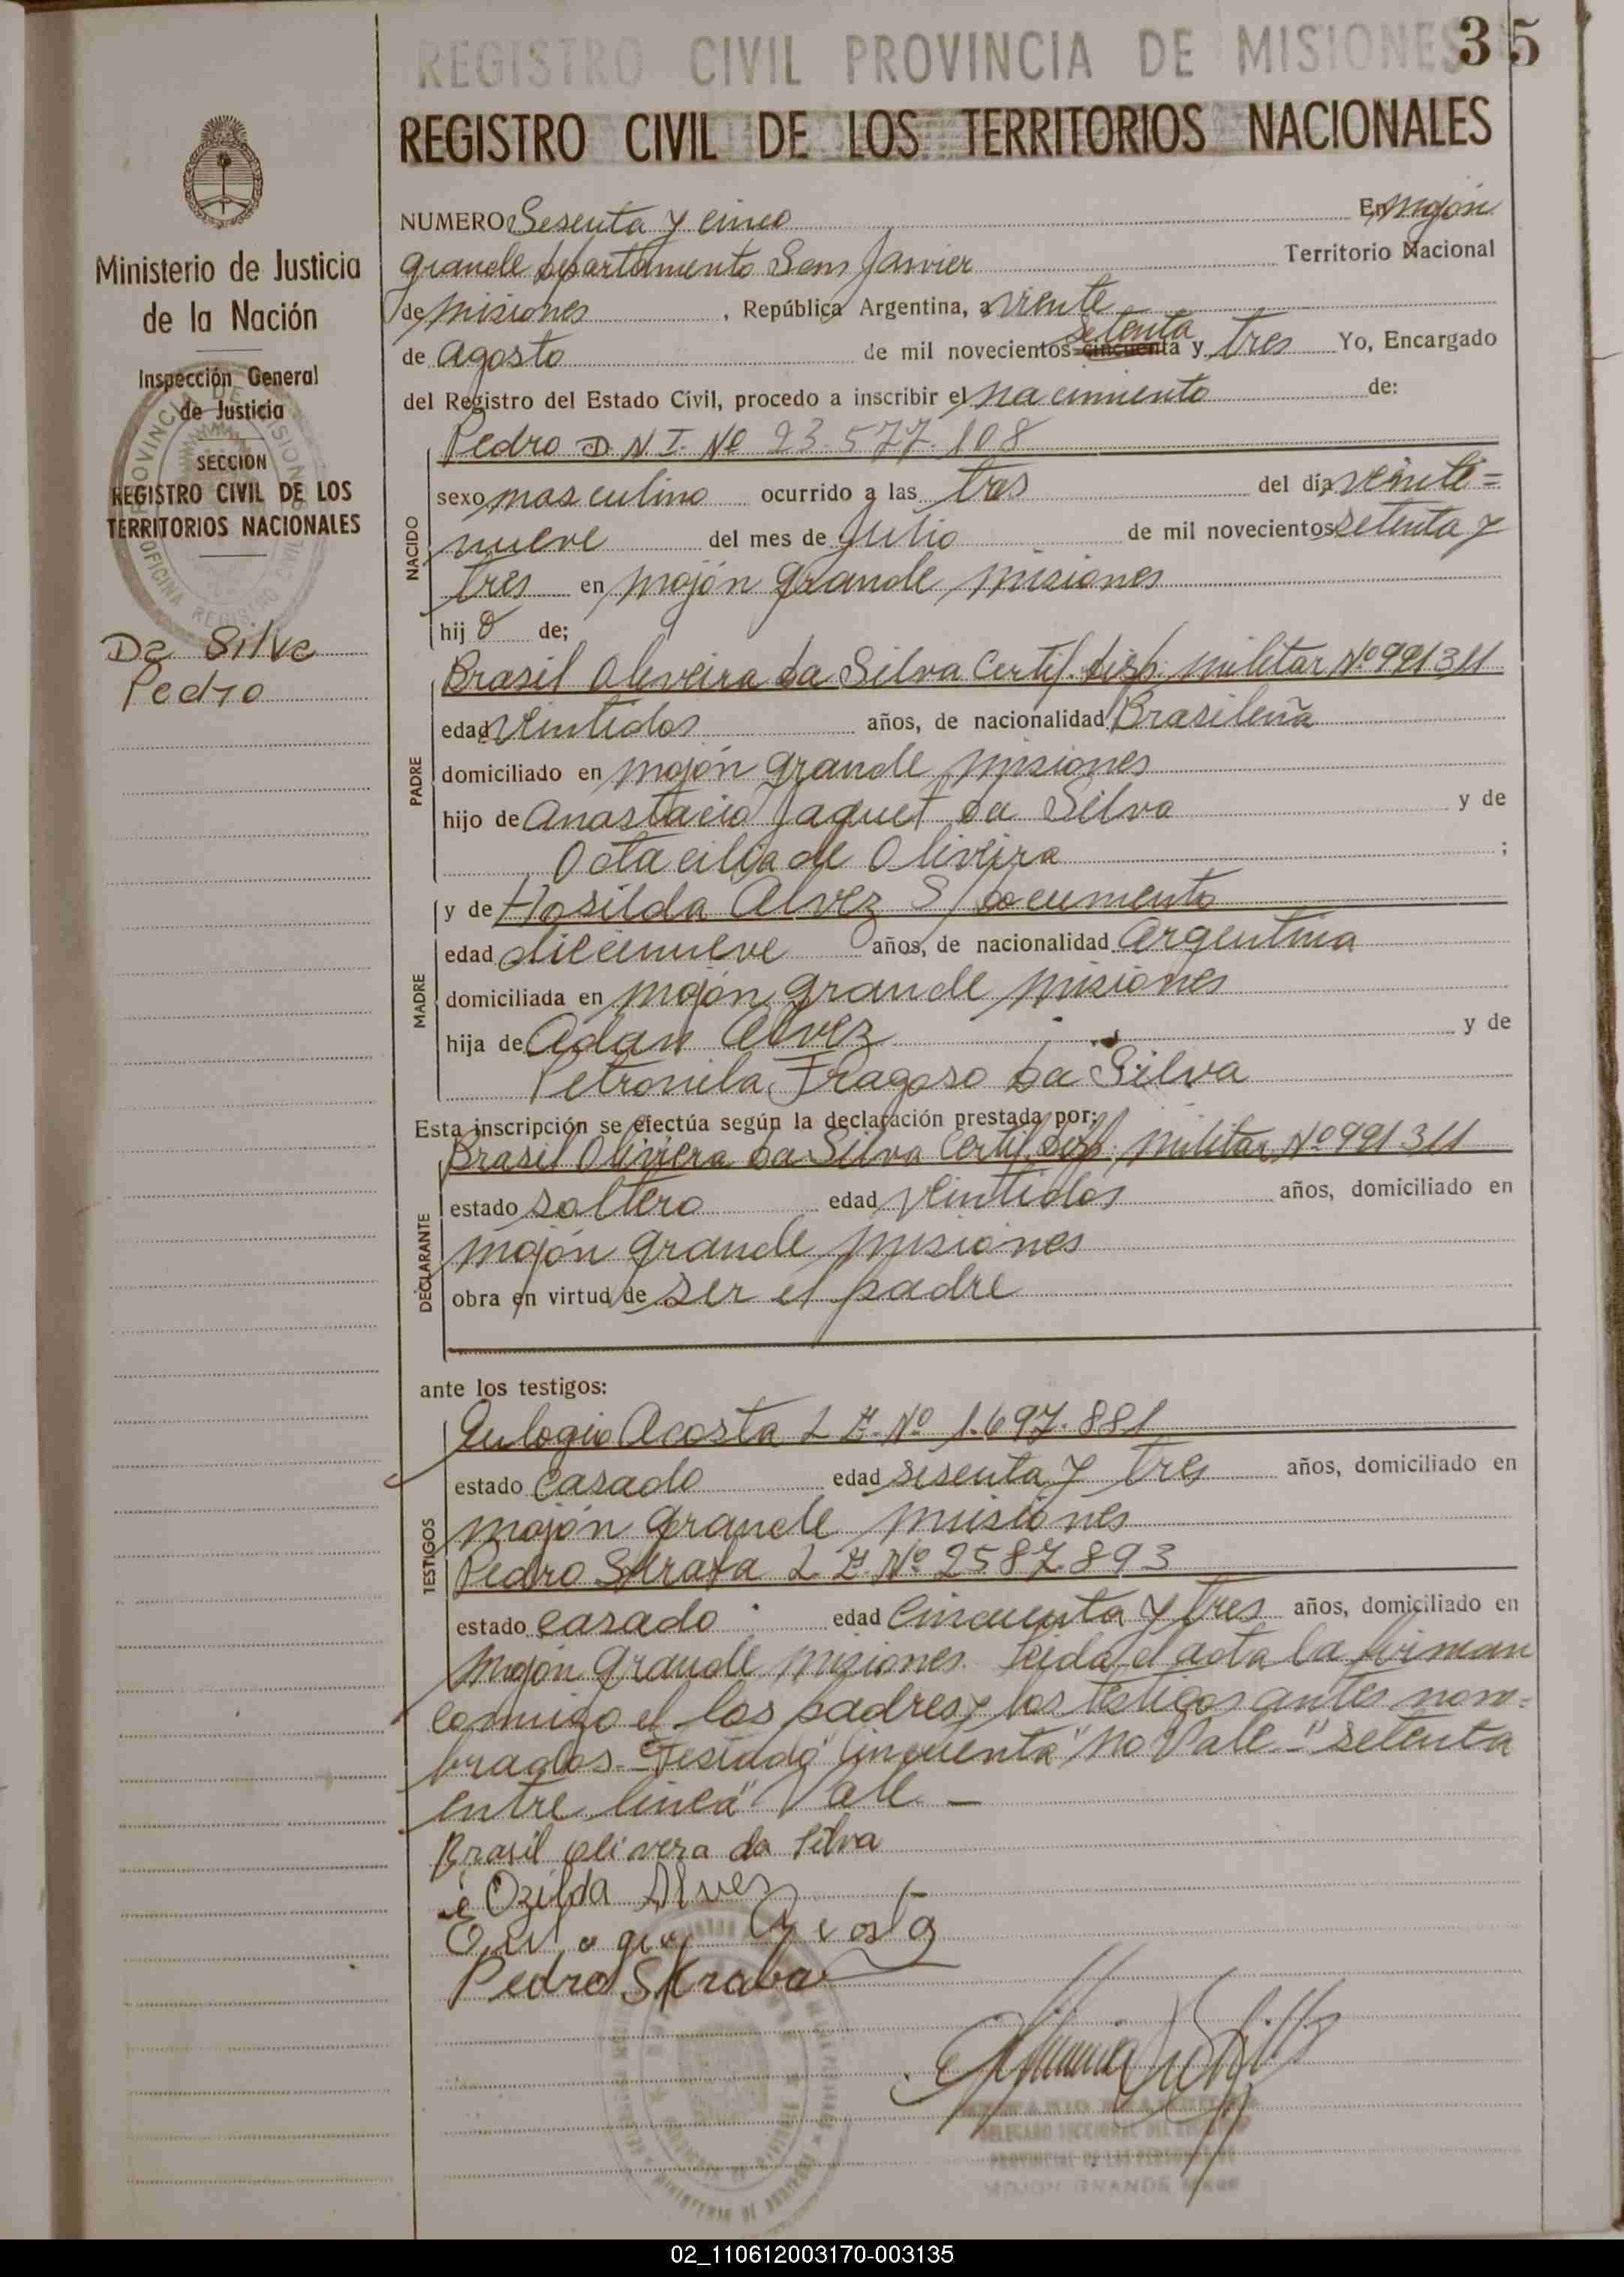 REGISTRO CIVIL PROVINCIA DE MISIONES 35
REGISTRO CIVIL DE LOS TERRITORIOS NACIONALES
Ministerio de Justicia
de la Nación
Inspección General
de Justicia
SECCION
REGISTRO CIVIL DE LOS
TERRITORIOS NACIONALES
Da Silva
Pedro
NUMERO Sesenta y cinco En Mojón
grande departamento San Javier Territorio Nacional
de Misiones, República Argentina, a veinte
setenta
de agosto de mil novecientos cincuenta y tres Yo, Encargado
del Registro del Estado Civil, procedo a inscribir el nacimiento de:
Pedro D.N.I. Nº 23.577.108
NACIDO
sexo masculino ocurrido a las tres del día veinti=
nueve del mes de Julio de mil novecientos setenta y
tres en Mojón grande Misiones
hijo de;
PADRE
Brasil Oliveira da Silva Certif. disp. militar Nº 991311
edad veintidos años, de nacionalidad Brasileña
domiciliado en Mojón grande Misiones
hijo de Anastacio Jaquet da Silva y de
Octacilia de Oliveira ;
MADRE
y de Hosilda Alvez S/documento
edad diecinueve años, de nacionalidad Argentina
domiciliada en Mojón grande Misiones
hija de Adan Alvez y de
Petronila Fragoso da Silva
Esta inscripción se efectúa según la declaración prestada por;
DECLARANTE
Brasil Olivera da Silva Certif. disp. militar Nº 991311
estado soltero edad veintidos años, domiciliado en
Mojón grande Misiones
obra en virtud de ser el padre
ante los testigos:
TESTIGOS
Eulogio Acosta L E. Nº 1.697.881
estado casado edad sesenta y tres años, domiciliado en
Mojón grande Misiones
Pedro Skraba L E. Nº 2587.893
estado casado edad Cincuenta y tres años, domiciliado en
Mojón grande Misiones. Leida el acta la firman
conmigo el los padres y los testigos antes nom=
brados.- Testado "Cincuenta" No Vale.- "Setenta
entre linea" Vale -
Brasil Olivera da Silva
Ozilda Alves
Eulogio Acosta
Pedro Skraba
DELEGADO SECCIONAL DEL REGISTRO
PROVINCIAL DE LAS PERSONAS
MOJON GRANDE
02_110612003170-003135